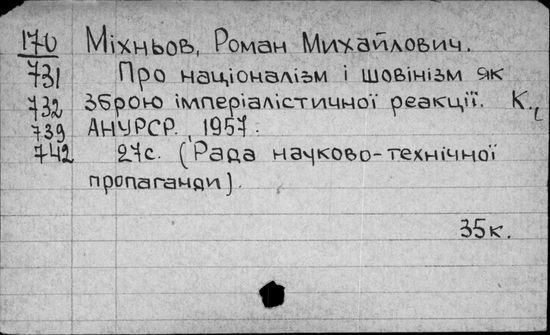 170 Міхньов, Роман Михайлович.
731 Про націоналізм і шовінізм як
732 зброю імперіалістичної реакції. К.,
739 АНУРСР., 1957.
742 27с. (Рада науково-технічної
пропаганди).
35к.